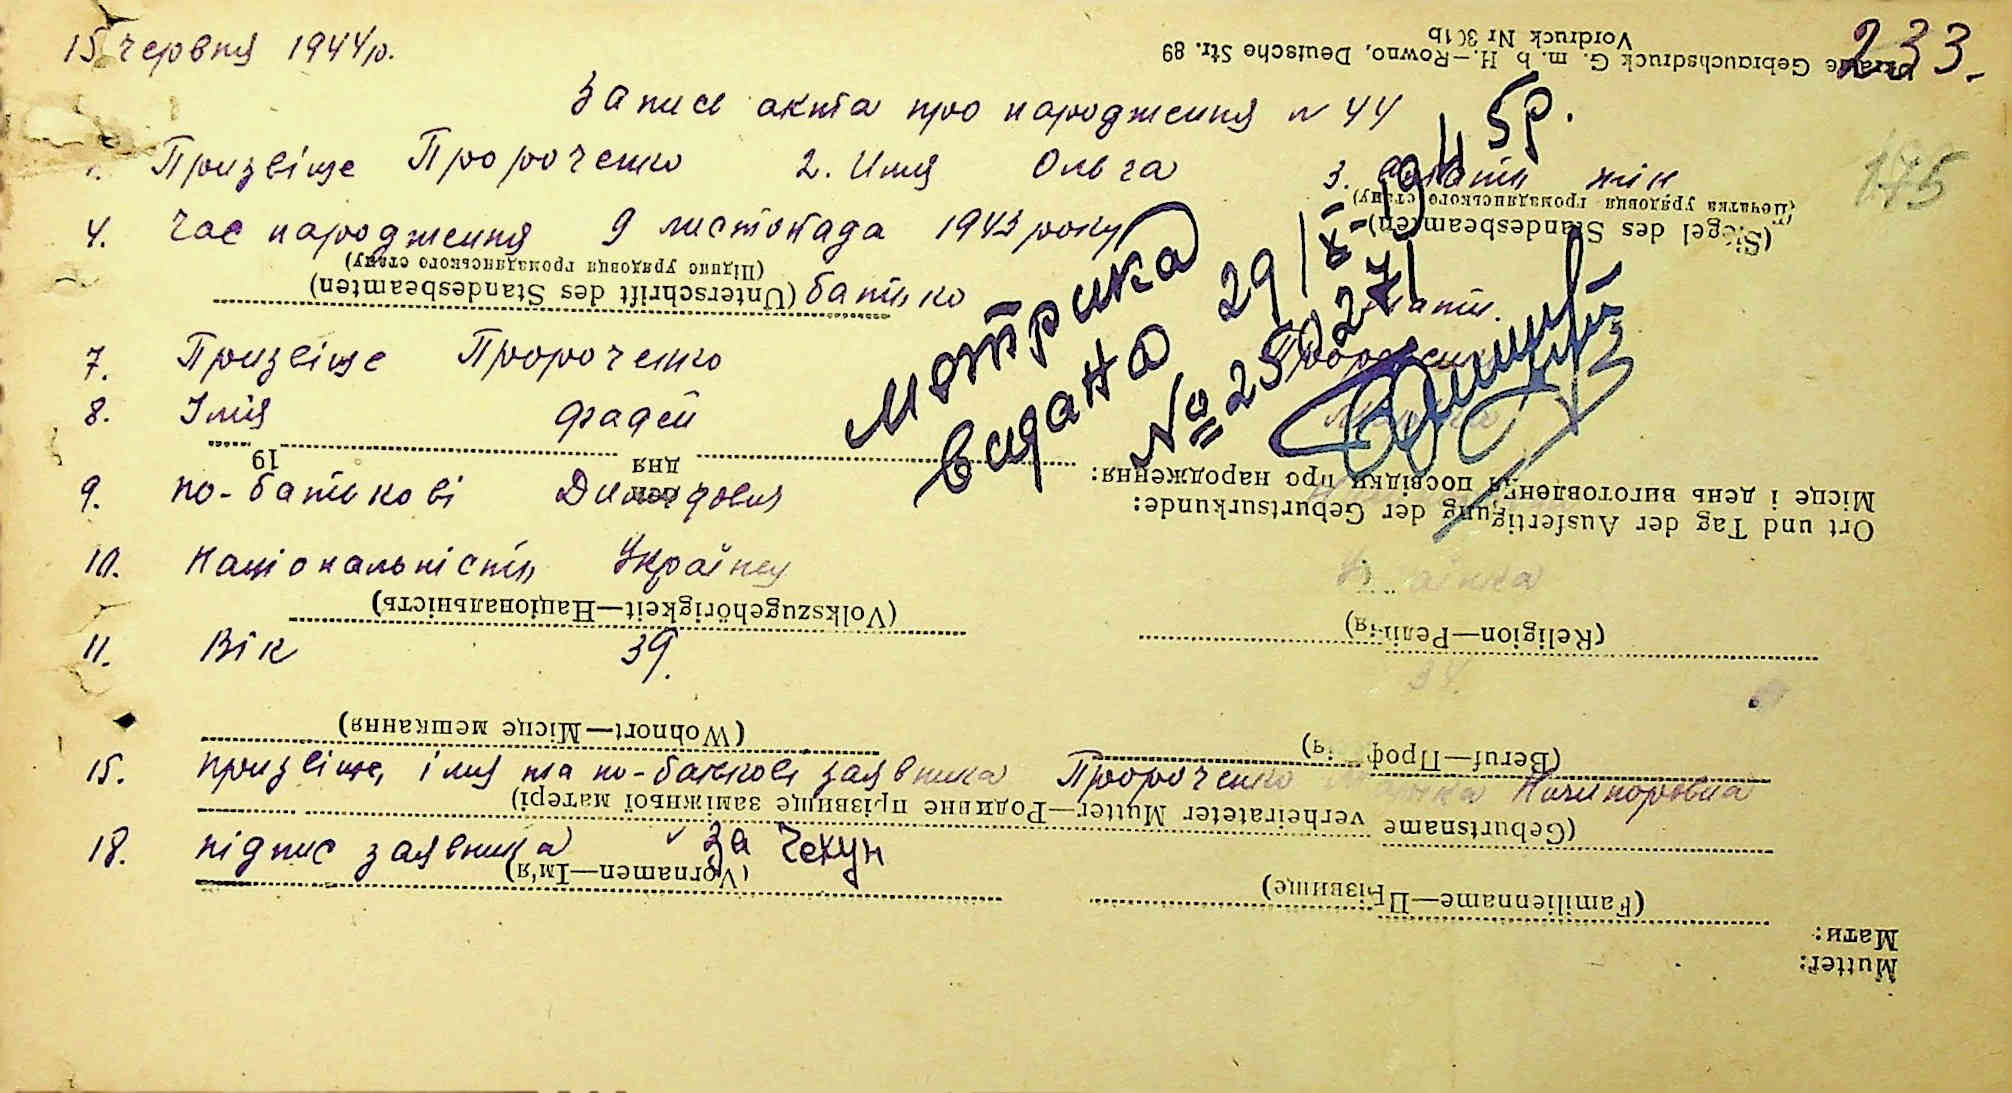 15 червня 1944р.
233.
175
Запись акта про народження № 44
1. Призвіще Пророченко 2. Имя Ольга 3. жін
4. Час народження 9 листопада 1943 року
батько мати.
7. Призвіще Пророченко
8. Імя Фадей
9. по-батькові
10. Національність Українец Українка
11. Вік 39. 34.
15. призвіще, імя та по-батькові заявника Пророченко Ничипоровна
18. підпис заявника за Чехун
Метрика
видана 29/X-1945р.
№ 250271
Gebrauchsdruck G. m. b. H.—Rowno, Deutsche Str. 89
Vordruck Nr 301b
(Siegel des Standesbeamten)
(Печатка урядовця громадянського стану)
(Unterschrift des Standesbeamten)
(Підпис урядовця громадянського стану)
19
дня
den
Місце і день виготовлення посвідки про народження:
Ort und Tag der Ausfertigung der Geburtsurkunde:
(Volkszugehörigkeit—Національність)
(Religion—Релігія)
(Wohnort—Місце мешкання)
(Beruf—Професія)
(Geburtsname verheirateter Mutter—Родинне прізвище заміжньої матері)
(Vornamen—Ім'я)
(Familienname—Прізвище)
Мати:
Mutter: